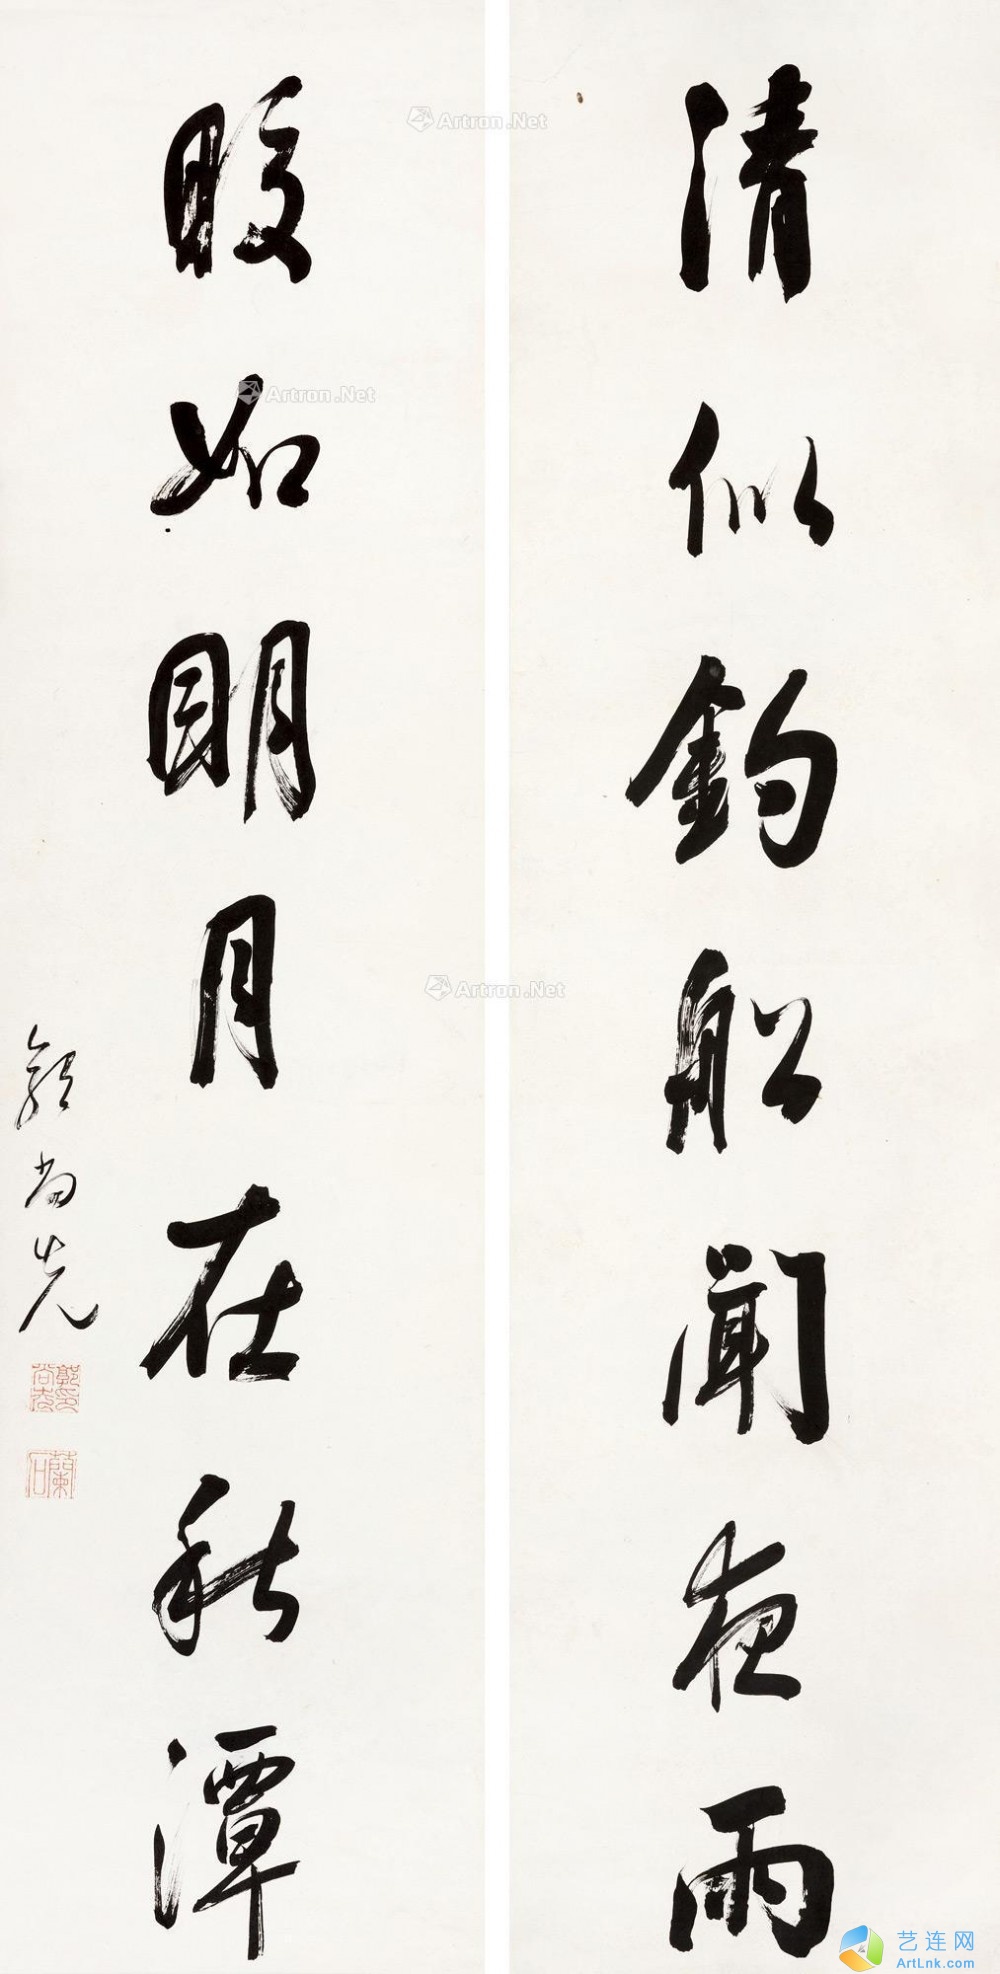 清似釣船聞夜雨
如明月在秋潭
郭尚先
郭尚先印
蘭石
Artron.Net
Artron.Net
Artron.Net
艺连网
ArtLnk.com